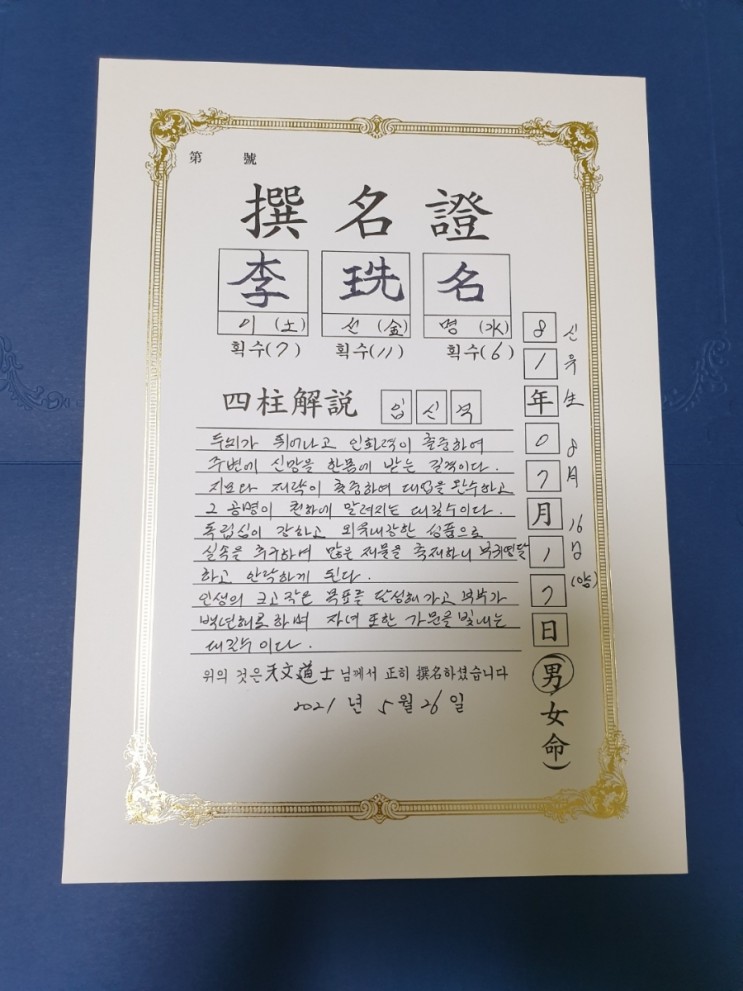 第 號
撰名證
李 珗 名
이 (土) 선 (金) 명 (水)
획수(7) 획수(11) 획수(6)
四柱解説 임 신 복
두뇌가 뛰어나고 인화력이 출중하여
주변에 신망을 한몸에 받는 길격이다.
지모와 재략이 출중하여 대업을 완수하고
그 공명이 천하에 알려지는 대길수이다.
독립심이 강하고 외유내강한 성품으로
실속을 추구하며 많은 재물을 축재하니 부귀영달
하고 안락하게 된다.
인생의 크고작은 목표를 달성해가고 부부가
백년해로하며 자녀 또한 가문을 빛내는
대길수이다.
위의 것은 天文道士님께서 正히 撰名하셨습니다
2021 년 5월 26일
81年07月17日(男女命)
신유生 8月 16日 (양)